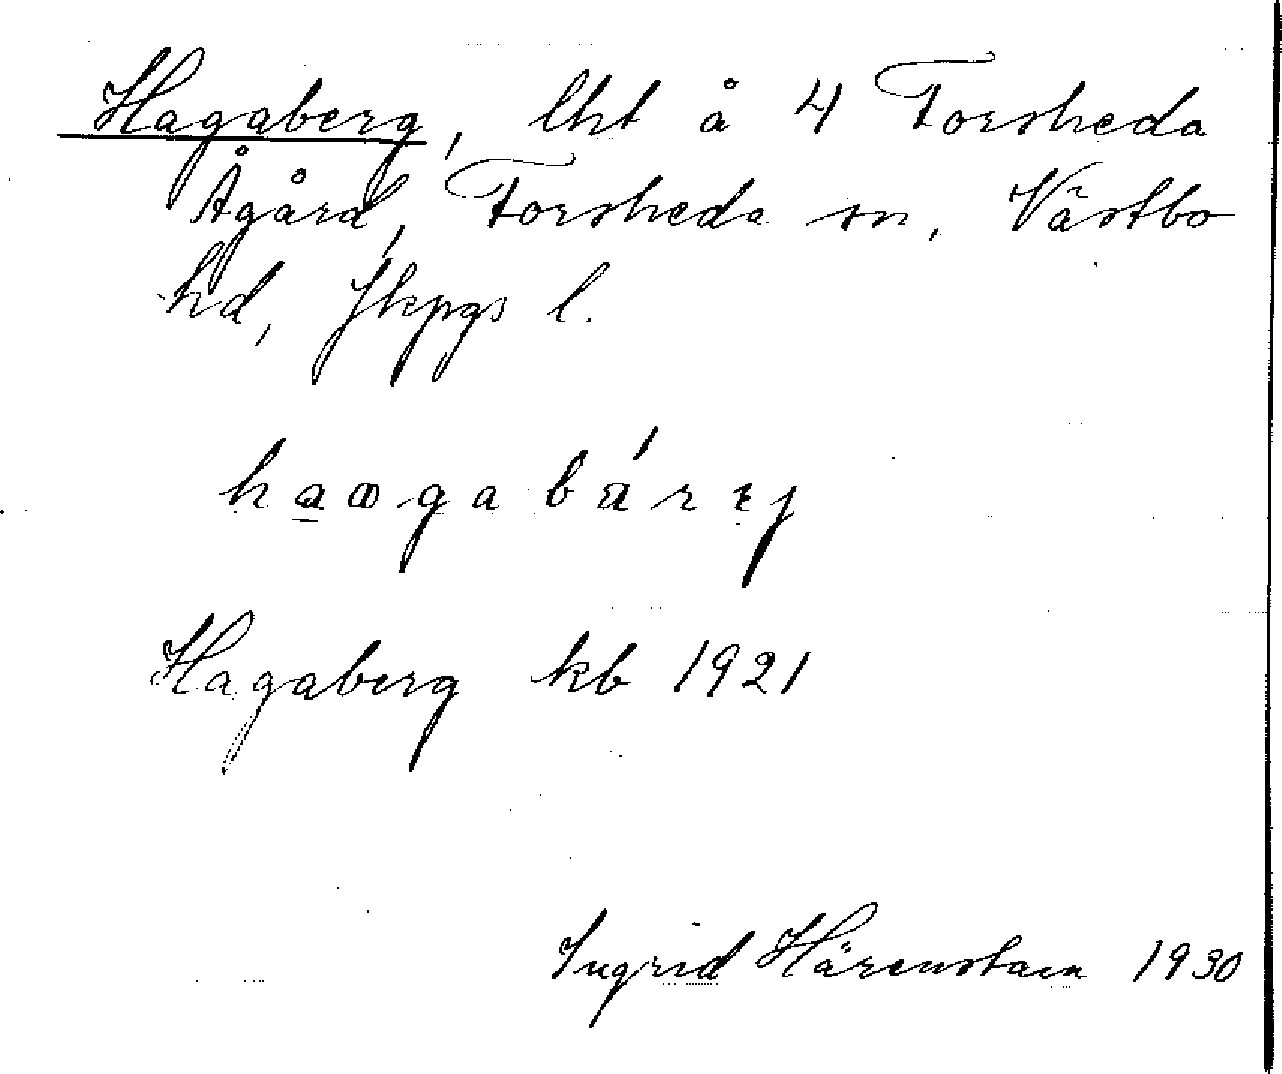 Hagaberg, lht å 4 Forsheda
Ågård, Forsheda sn, Västbo
hd, Jkpgs l.
Hagaberg kb 1921
Ingrid Härenstam 1930